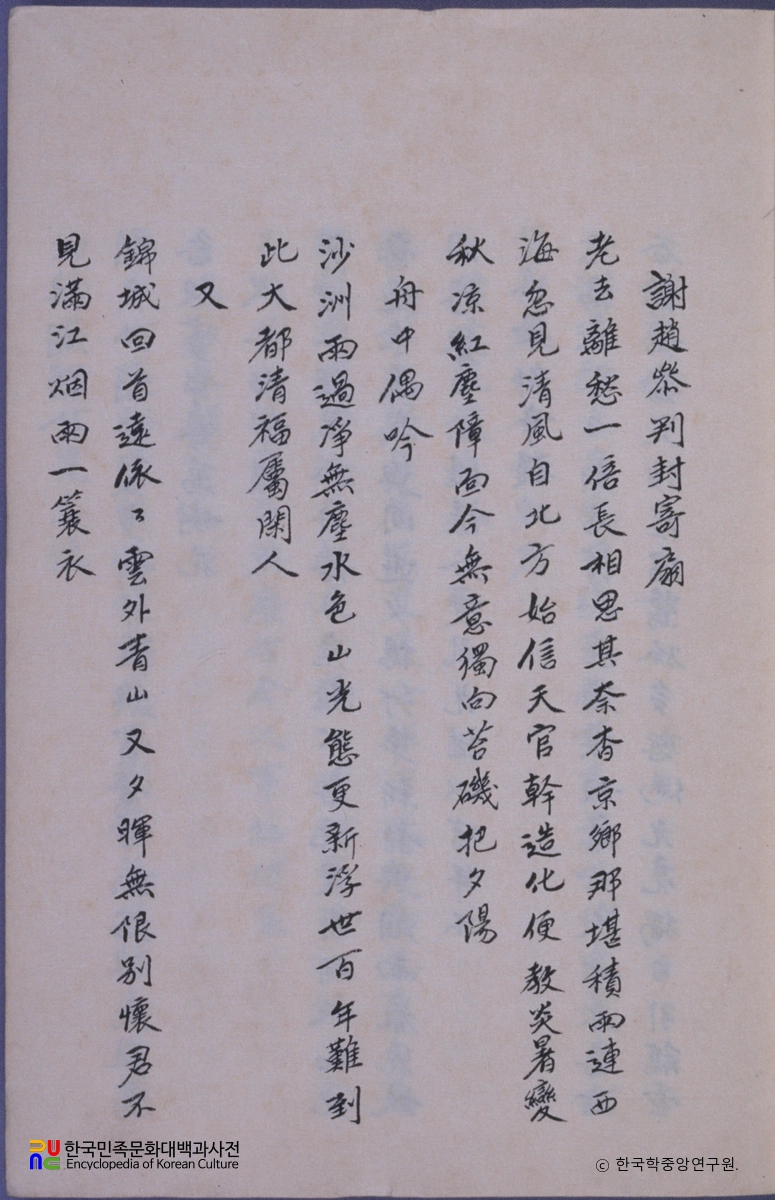 謝趙參判封寄扇
老去離愁一倍長相思其奈杳京鄉那堪積雨連西
海忽見清風自北方始信天官幹造化便教炎暑變
秋凉紅塵障面今無意獨向苔磯把夕陽
舟中偶吟
沙洲雨過淨無塵水色山光態更新浮世百年難到
此大都清福屬閑人
又
錦城回首遠依〻雲外青山又夕暉無限別懷君不
見滿江烟雨一簑衣
한국민족문화대백과사전
Encyclopedia of Korean Culture
© 한국학중앙연구원.